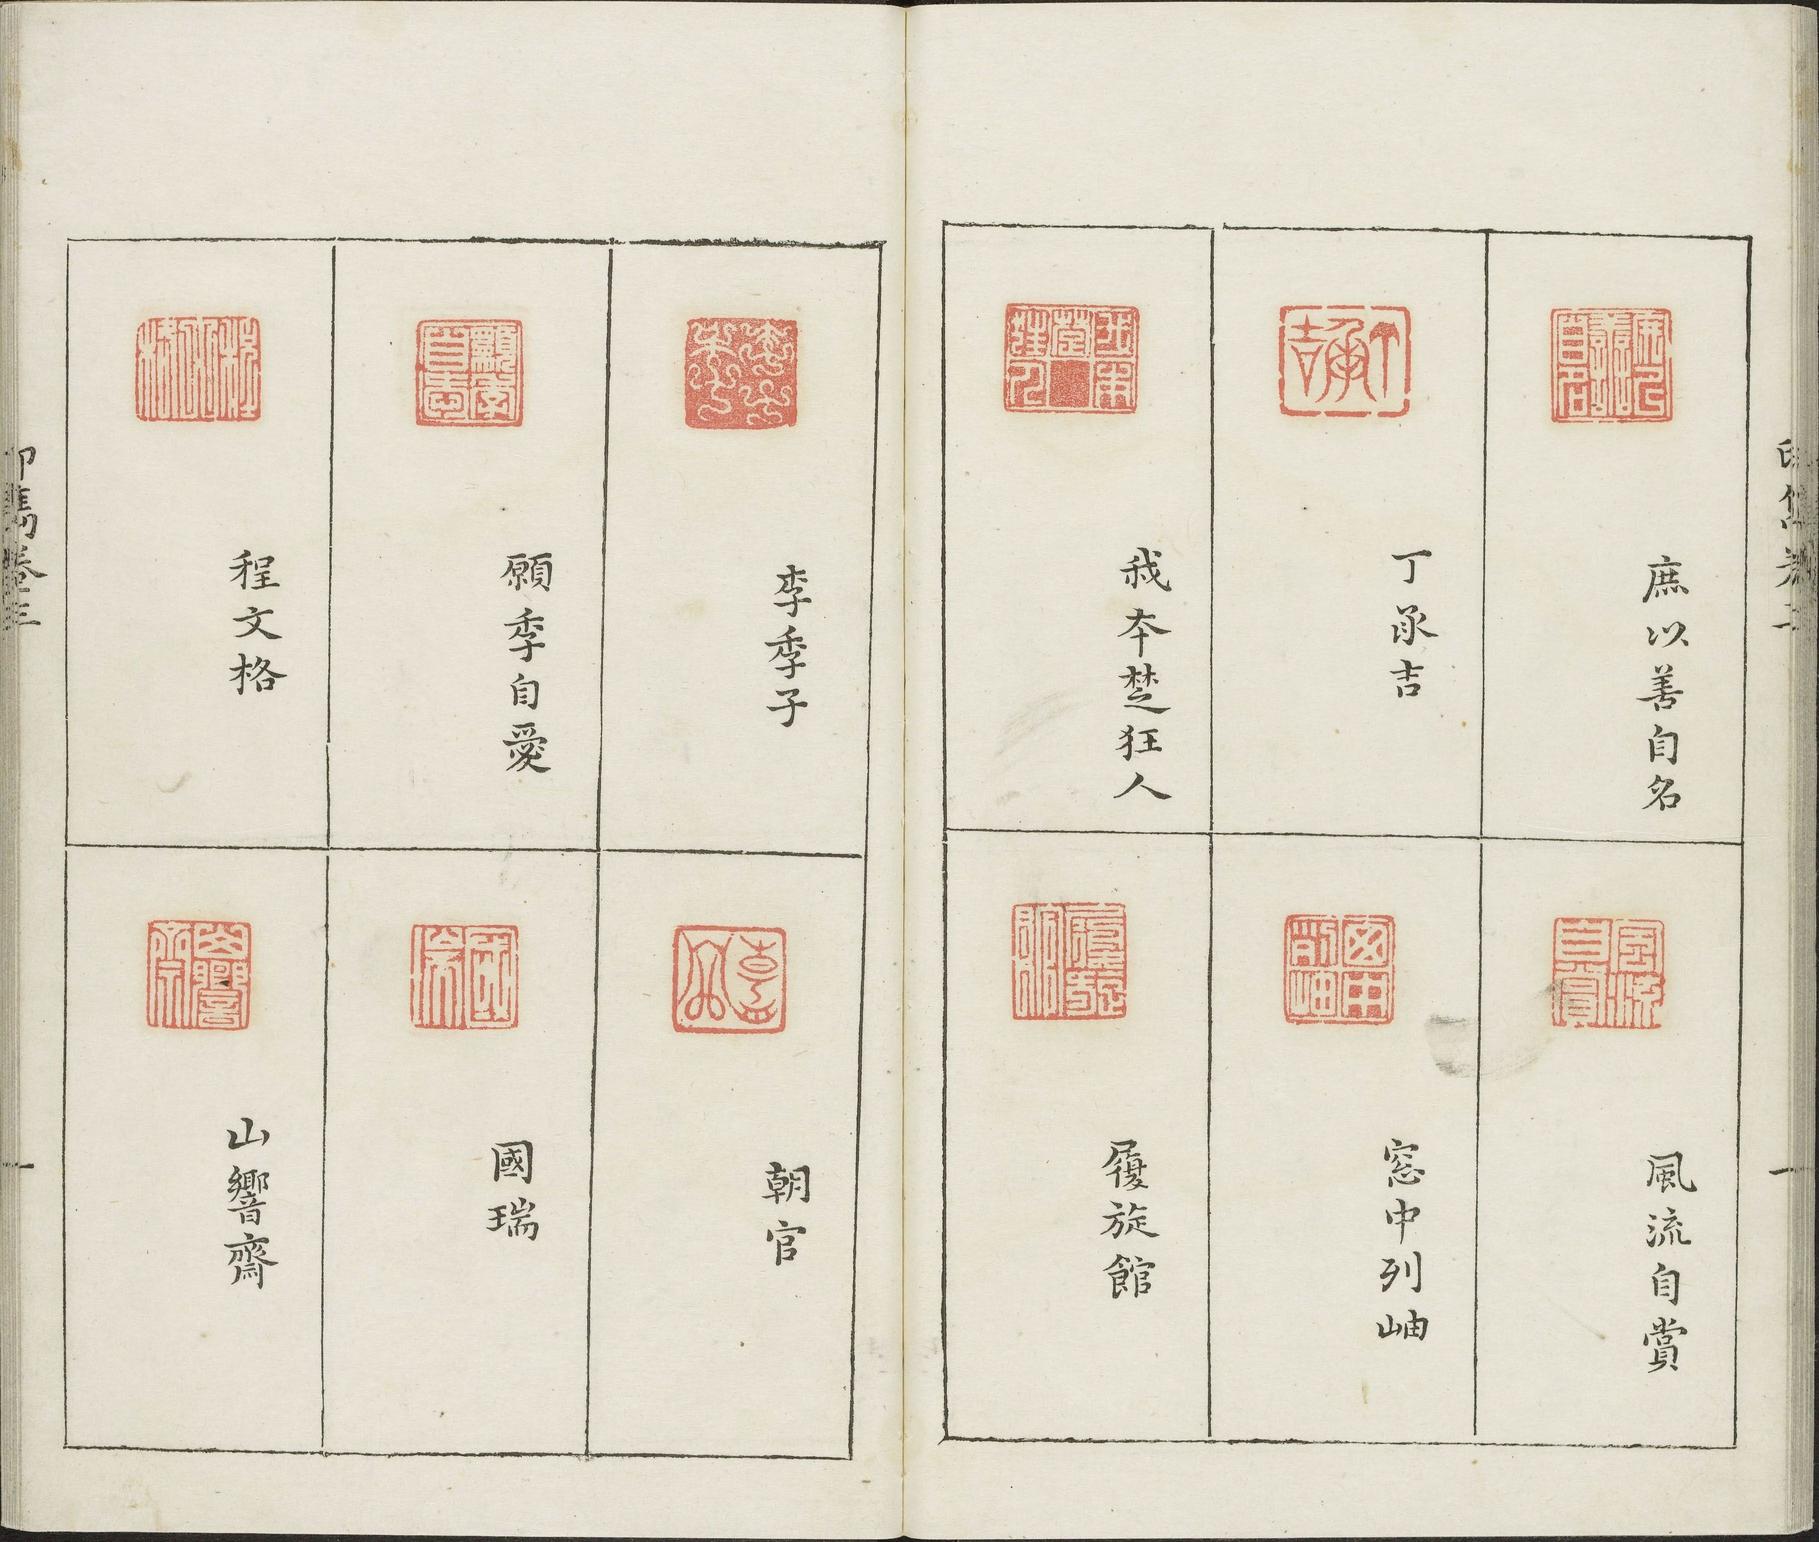 庶以善自名
丁承吉
我本楚狂人
風流自賞
窓中列岫
履旋館
李季子
願季自愛
程文格
朝官
國瑞
山響齋
印雋卷三
一